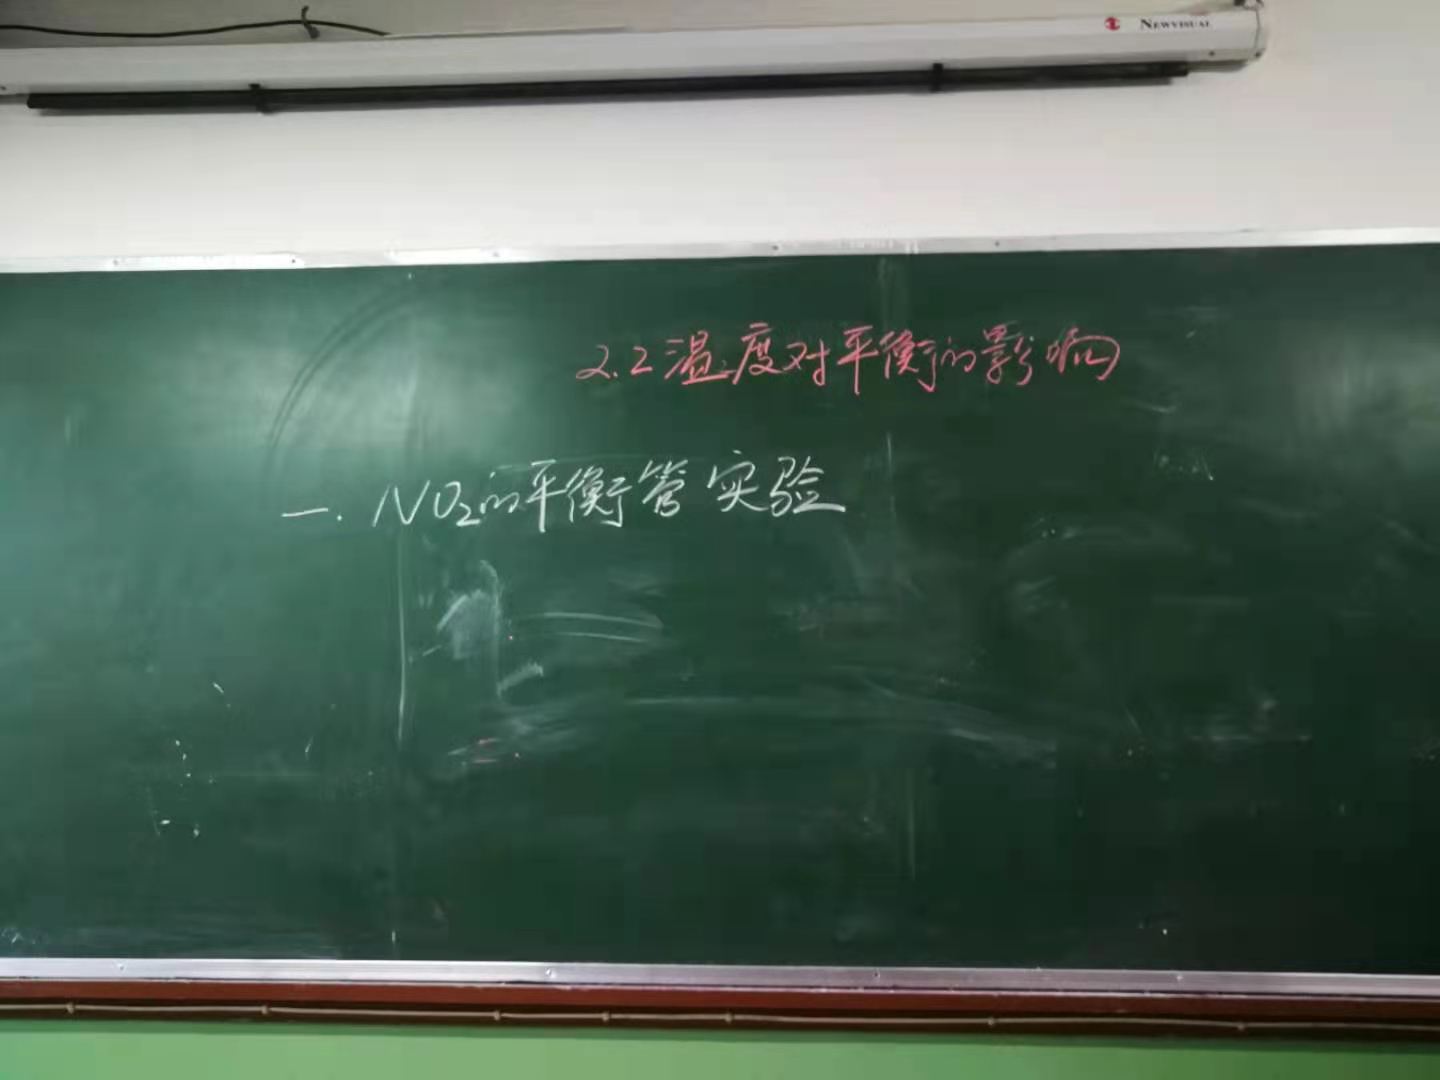 NEWVISUAL
2.2温度对平衡的影响
一.NO₂的平衡管实验